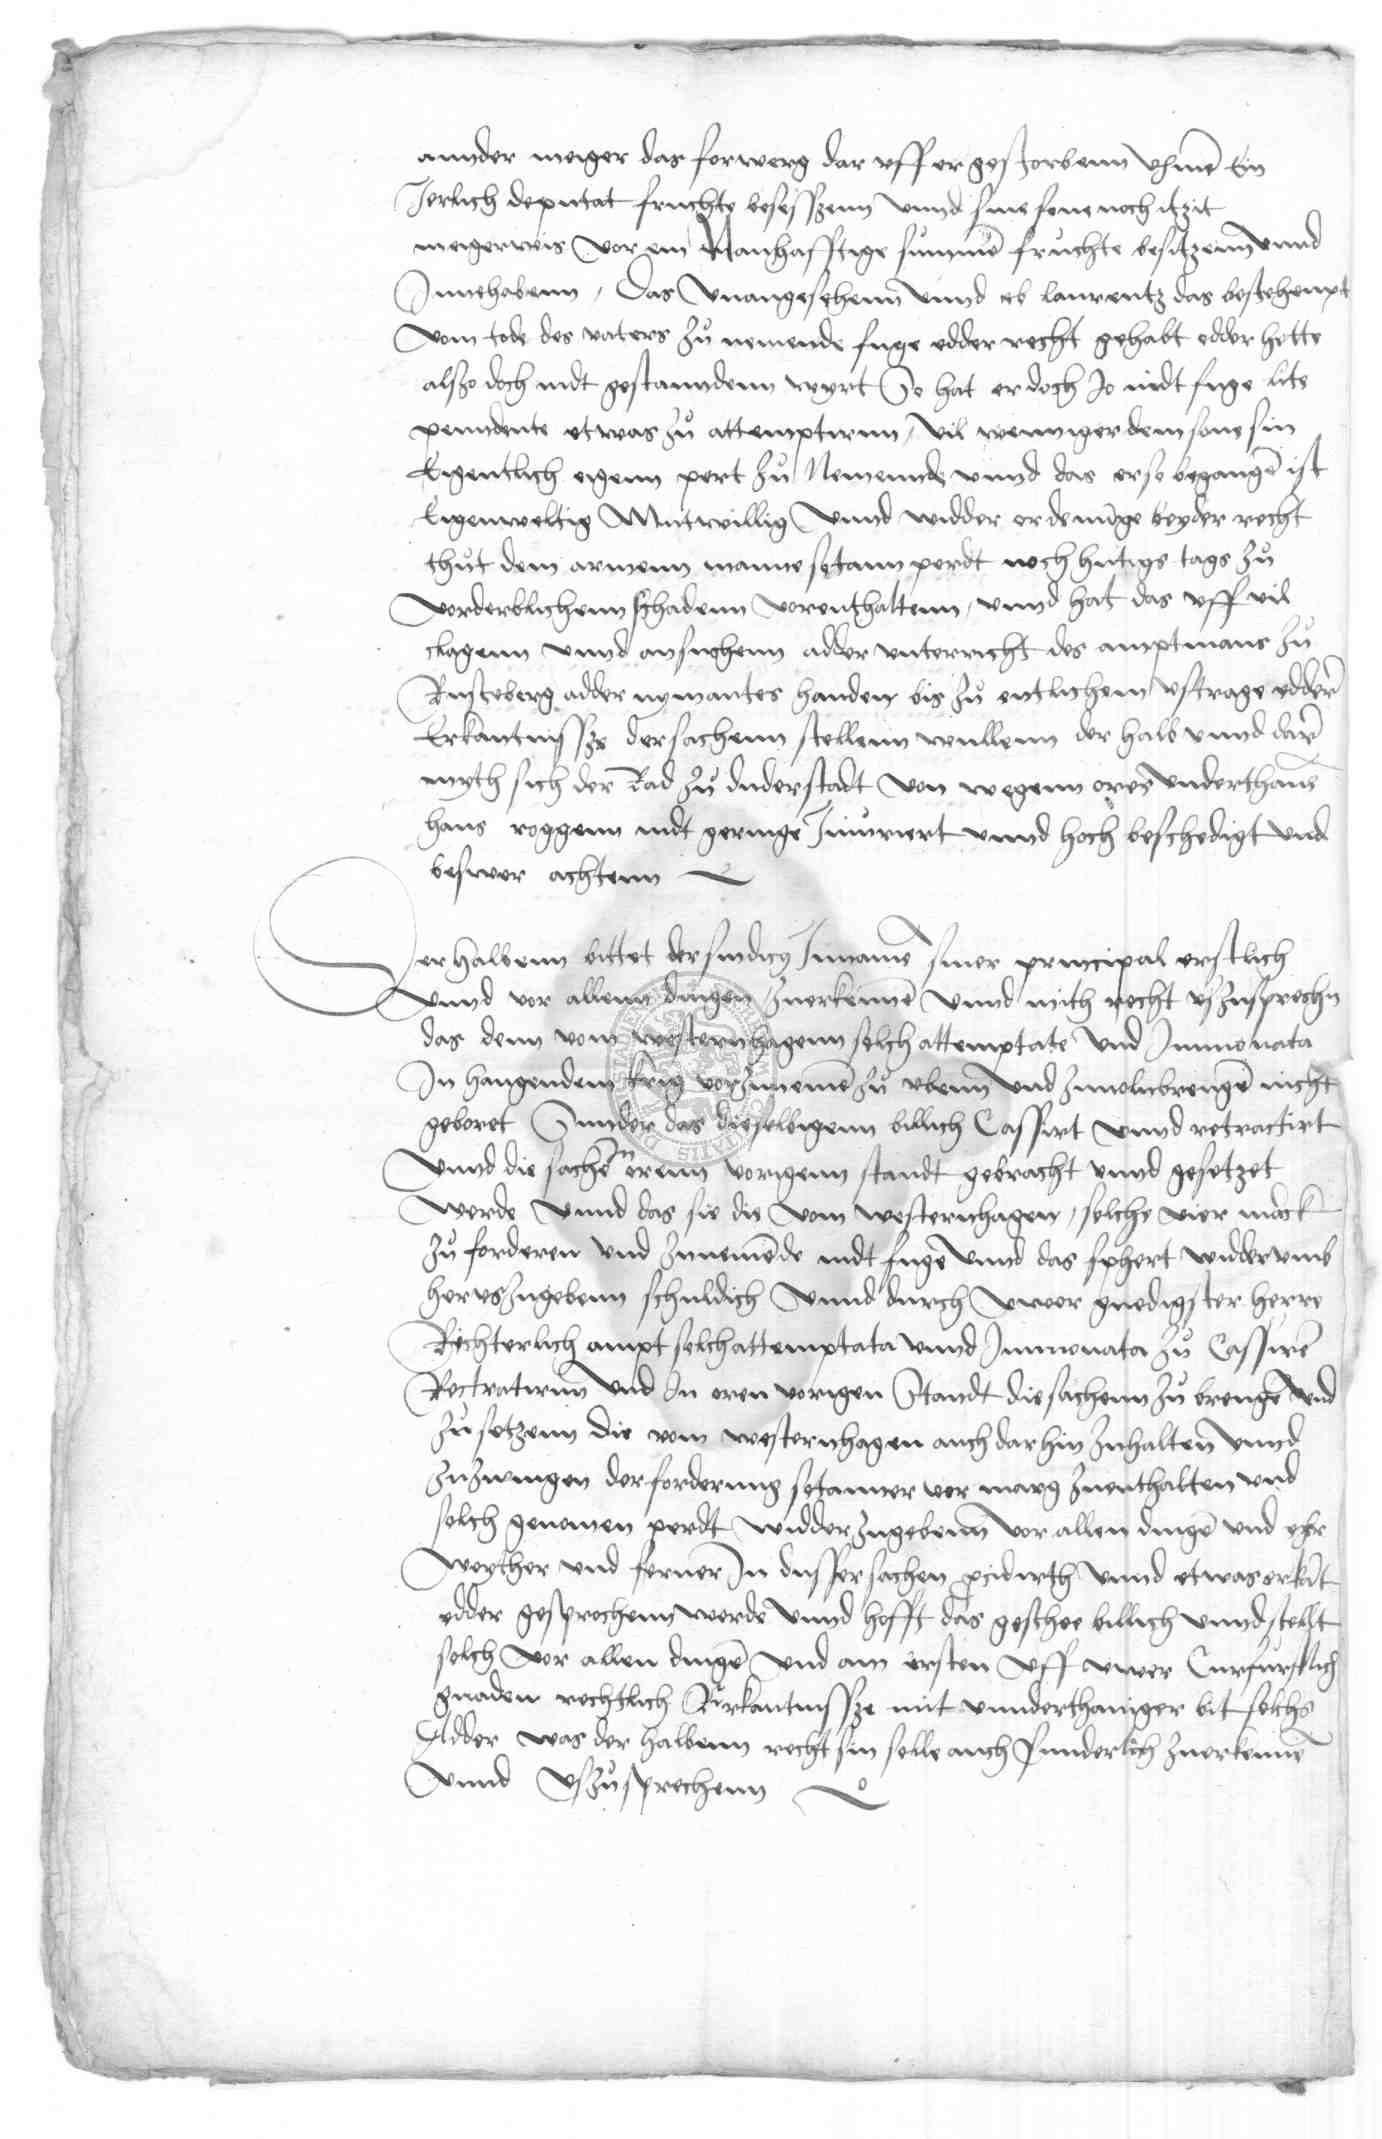 annder meiger das forwerg dar uff er gestorbenn Ein
Jerlich deputat fruchte besesszenn unnd sine sone noch itzit
meigerwis vor ein Nanhafftige summe fruchte besitzenn unnd
Innehabenn / Das unangesehenn unnd ob laurentz das bestehenpt
vom tode des vaters zu nemende fuge edder recht gehabt edder hette
alszo doch nidt gestanndenn wyrt So hat er doch Jo nidt fuge lite
penndente etwas zu attemptirnn / vil wenniger dem sone sin
Eigentlich eigenn pert zu Nemennde unnd das er so begangē ist
Eigenweltig Mutwillig unnd widder ordenūge beyder recht
thut dem armenn manne sotann perdt noch hutigs tags zu
vorderblichenn schadenn vorenthaltenn / unnd hat das uff vil
clagenn unnd ansuchenn adder unterricht des amptmans zu
Rusteberg adder nymantes handen bis zu entlichem ustrage edder
Erkantnissze der sachenn stellenn wullenn der halb unnd dar
myth sich der Rad zu duderstadt von wegenn ores underthans
hans roggenn nidt geringe Iniuriert unnd hoch beschedigt und
beswer achtenn
Der halbenn bittet der sindicus Inname siner principal erstlich
unnd vor allenn dingen zuerkennē unnd mith recht uszusprechn
das denn vom westernhagenn solch attemptate und Innouata
In hangendem krig vorzunemē zu ubenn und zuvolnbrengē nicht
geboret Sunder das dieselbigenn billich Cassirt unnd retractirt
unnd die sachē In orenn vorigenn standt gebracht unnd gesetzet
werde unnd das sie die vom westernhagen / solche vier marck
zu forderen und zunemēde nidt fuge unnd das phert widderumb
heruszugebenn schuldich unnd durch uwer gnedigster herre
Richterlich ampt solch attemptata unnd Innouata zu Cassirē
Rectratirnn und In oren vorigen Standt die sachenn zu brengē und
zu setzenn die vom westernhagen auch darhin zuhaltenn unnd
zuzwingen der forderung sotanner ver marg zuenthalten und
solch genomen perdt widderzugebenn vor allen dingē und ehr
weyther und ferner In disser sachen procidirth unnd etwas erkāt
edder gesprochenn werde unnd hofft das geschee billich unnd stellt
solch vor allen dingē und am ersten uff uwer Curfurstlich
gnaden rechtlich Erkantnissze mit unnderthaniger bit solchs
Adder was der halbenn recht sin solle auch sunderlich zuerkennē
unnd uszusprechenn